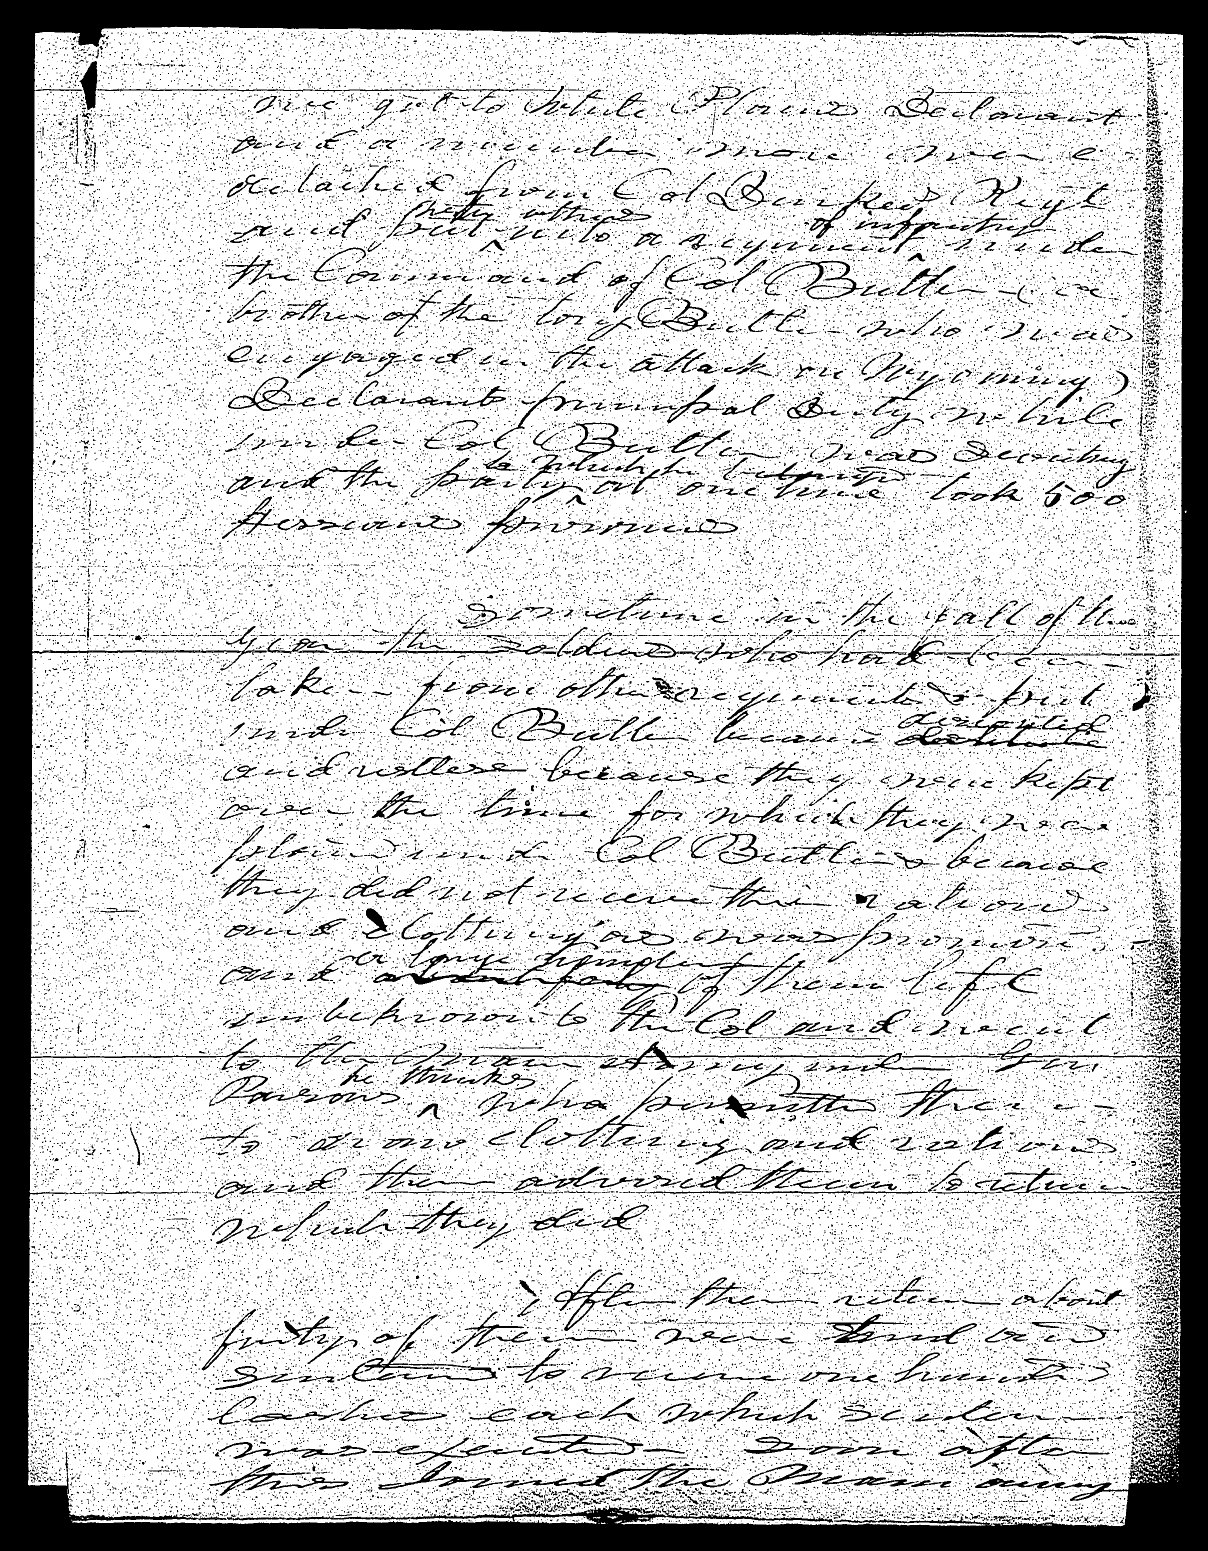 we got to White Plains Declarant
and a number more were
detached from Col Dinkeas Regt
and put with others into a regiment of infantry under
the Command of Col Butler (a
brother of the tory Butler who was
engaged in the attack on Wyoming)
Declarants principal Duty while
under Col Butler was Scouting
and the party to which he belonged at one time took 500
Hessians prisoners
Sometime in the fall of the
year the soldiers who had been
taken from other regiments & put
under Col Butler became discontented
and restless because they were kept
over the time for which they were
placed under Col Butler & because
they did not receive their rations
and clothing as was promised,
and a large number of them left
unbeknown to the Col and went
to the main Army under Gen
Parsons he thinks who permitted them
to draw clothing and rations
and then advised them to return
which they did
After their return about
forty of them were tried and
sentenced to receive one hundred
lashes each which sentence
was executed - Soon after
this Joined the Main army